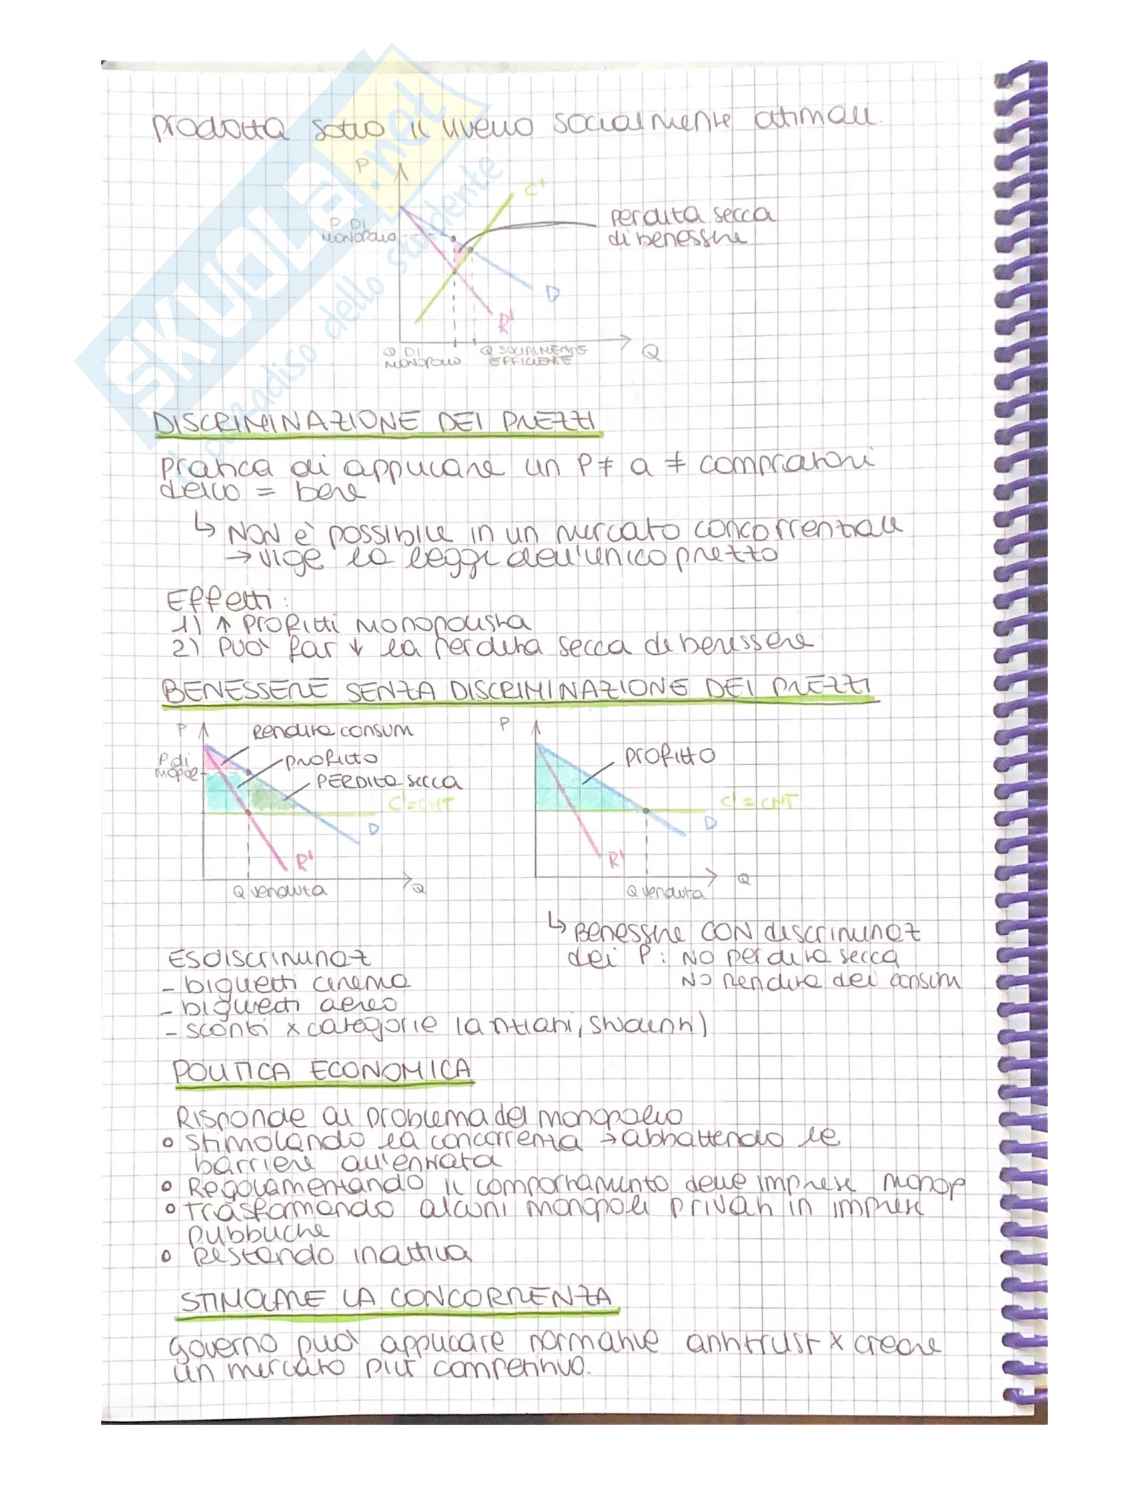 prodotta sotto il livello socialmente ottimale.
SKUOLA.net
paradiso dello studente
P
C'
P DI MONOPOLIO
perdita secca
di benessere
D
R'
Q DI MONOPOLIO
Q SOCIALMENTE EFFICIENTE
Q
DISCRIMINAZIONE DEI PREZZI
pratica di applicare un P ≠ a ≠ compratori
dello = bene
↳ NON è possibile in un mercato concorrenziale
→ vige la legge dell'unico prezzo
Effetti:
1) ↑ profitti monopolista
2) Può far ↓ la perdita secca di benessere
BENESSERE SENZA DISCRIMINAZIONE DEI PREZZI
P
Rendita consum
P di monop
profitto
PERDITA secca
C'=CMT
D
R'
Q venduta
Q
P
PROFITTO
C'=CMT
D
R'
Q venduta
Q
↳ Benessere CON discriminaz
dei P: NO perdita secca
NO rendita dei consum
Es discriminaz
- biglietti cinema
- biglietti aereo
- sconti x categorie (anziani, studenti)
POLITICA ECONOMICA
Risponde al problema del monopolio
• stimolando la concorrenza → abbattendo le
barriere all'entrata
• Regolamentando il comportamento delle imprese monop
• trasformando alcuni monopoli privati in imprese
pubbliche
• Restando inattiva
STIMOLARE LA CONCORRENZA
Governo può applicare normative antitrust x creare
un mercato più competitivo.